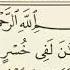 ٱللَّهِ ٱلرَّحۡ
ـٰنَ لَفِى خُسۡرٍ